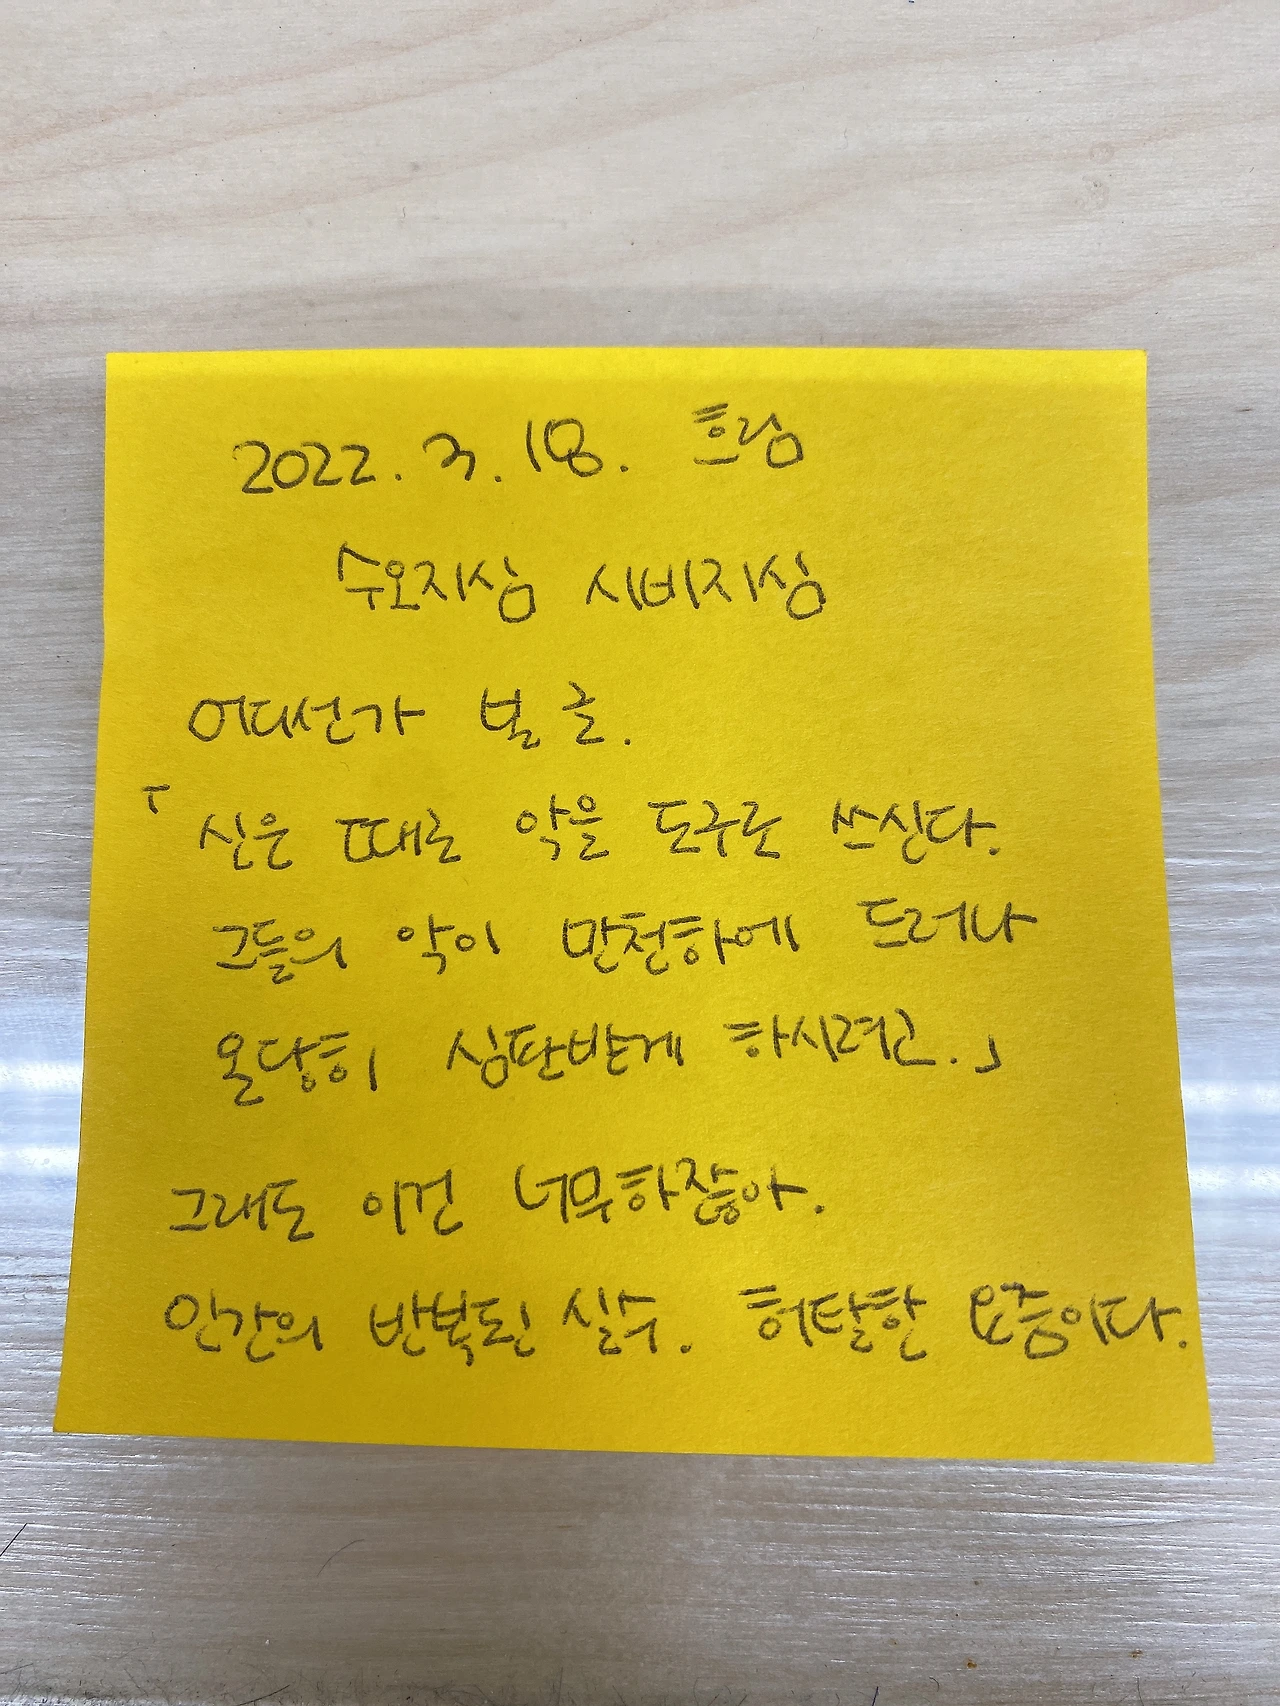 2022. 3. 18. 흐림
수오지심 시비지심
어디선가 본 글.
「신은 때로 악을 도구로 쓰신다.
그들의 악이 만천하에 드러나
온당히 심판받게 하시려고.」
그래도 이건 너무하잖아.
인간의 반복된 실수. 허탈한 요즘이다.